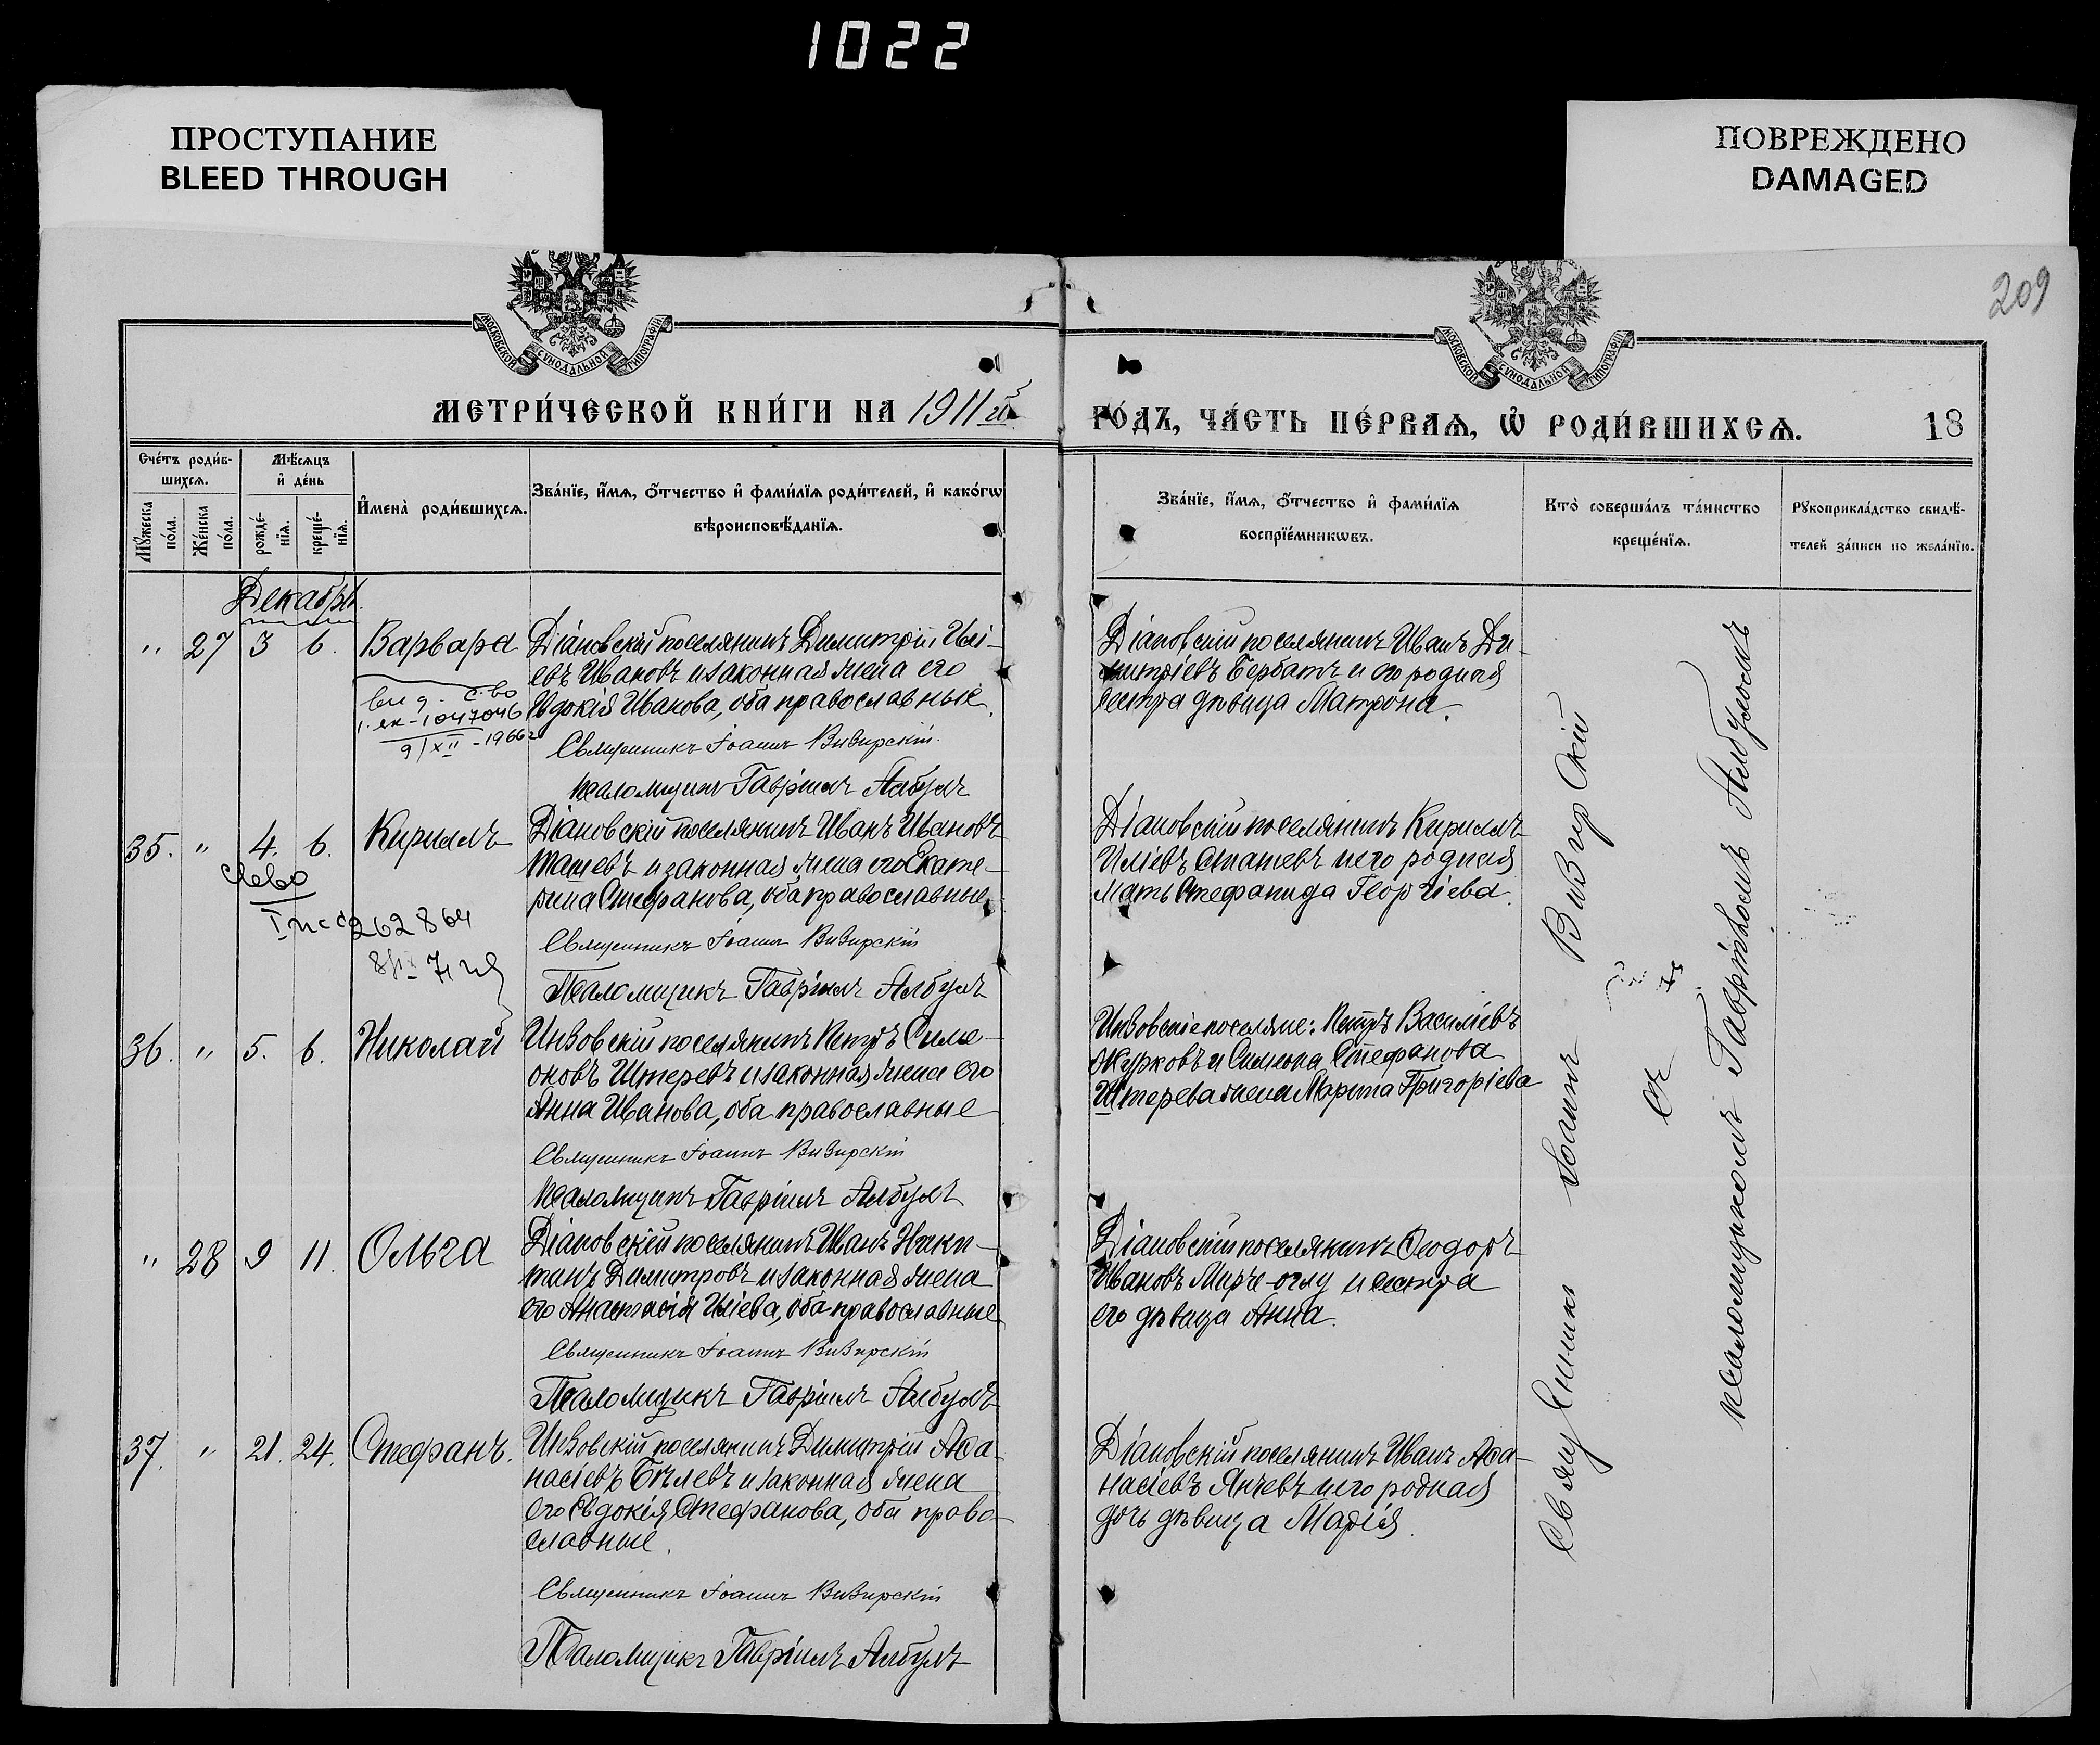 1022
ПРОСТУПАНИЕ
BLEED THROUGH
ПОВРЕЖДЕНО
DAMAGED
209
МОСКОВСКОЙ СѴНОДАЛЬНОЙ ТИПОГРАФІИ
МОСКОВСКОЙ СѴНОДАЛЬНОЙ ТИПОГРАФІИ
МЕТРИ́ЧЕСКОЙ КНИ́ГИ НА 1911 й
ГО́ДЪ, ЧА́СТЬ ПЕ́РВАѦ, Ѡ҆ РОДИ́ВШИХСѦ.
18
Сче́тъ роди́в-
шихсѧ.
Мѣ́сѧцъ
и҆ де́нь
Мꙋ́жеска
по́ла.
Же́нска
по́ла.
рожде́-
нїѧ.
креще́-
нїѧ.
И҆мена̀ роди́вшихсѧ.
Зва́нїе, и҆́мѧ, ѻ҆́тчество и҆ фами́лїѧ роди́телей, и҆ како́гѡ
вѣроисповѣ́данїѧ.
Зва́нїе, и҆́мѧ, ѻ҆́тчество и҆ фами́лїѧ
воспрїе́мникѡвъ.
Кто̀ соверша́лъ та́инство
креще́нїѧ.
Рꙋкоприкла́дство свидѣ́-
телей за́писи по жела́нїю.
Декабрь.
" 27 3 6. Варвара
Діановскій поселянинъ Димитрій Илі-
евъ Ивановъ и законная жена его
Евдокія Иванова, оба православные.
с-во
1047046
9/XII - 1966 г
Священникъ Іоаннъ Визирскій.
Псаломщикъ Гавріилъ Албулъ
Діановскій поселянинъ Иванъ Ди-
митріевъ Бербатъ и его родная
сестра дѣвица Матрона.
35. " 4. 6. Кириллъ
Діановскій поселянинъ Иванъ Ивановъ
Ташевъ и законная жена его Екате-
рина Стефанова, оба православные.
262864
Священникъ Іоаннъ Визирскій
Псаломщикъ Гавріилъ Албулъ
Діановскій поселянинъ Кириллъ
Иліевъ Статевъ и его родная
мать Стефанида Георгіева.
36. " 5. 6. Николай
Инзовскій поселянинъ Петръ Симе-
оновъ Штеревъ и законная жена его
Анна Иванова, оба православные
Священникъ Іоаннъ Визирскій
Псаломщикъ Гавріилъ Албулъ
Инзовскіе поселяне: Петръ Василіевъ
Журковъ и Симеона Стефанова
Штерева жена Марта Григоріева
" 28 9 11. Ольга
Діановскій поселянинъ Иванъ Ники-
танъ Димитровъ и законная жена
его Анастасія Иліева, оба православные
Священникъ Іоаннъ Визирскій
Псаломщикъ Гавріилъ Албулъ
Діановскій поселянинъ Ѳеодоръ
Ивановъ Мирче-оглу и сестра
его дѣвица Анна.
37. " 21. 24. Стефанъ.
Инзовскій поселянинъ Димитрій Аѳа-
насіевъ Бѣлевъ и законная жена
его Евдокія Стефанова, оба право-
славные.
Священникъ Іоаннъ Визирскій
Псаломщикъ Гавріилъ Албулъ
Діановскій поселянинъ Иванъ Аѳа-
насіевъ Янчевъ и его родная
дочь дѣвица Марія.
Священникъ Іоаннъ Визирскій
съ
псаломщикомъ Гавріиломъ Албуломъ